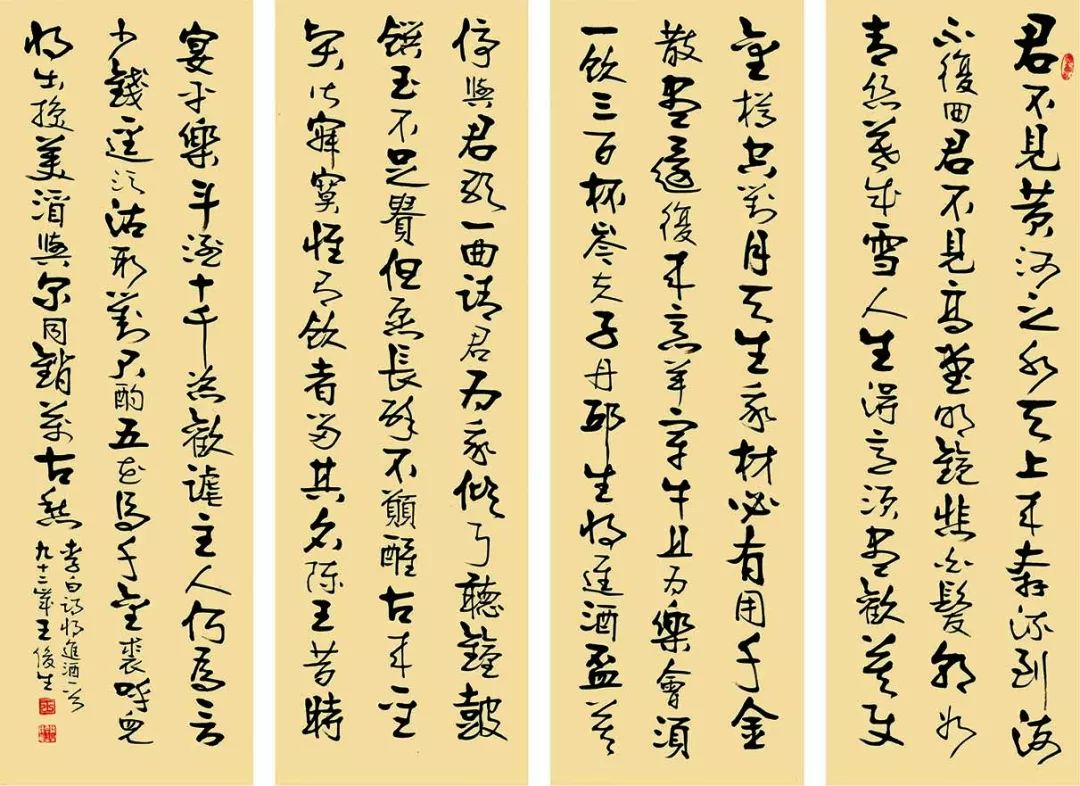 君不見黄河之水天上来奔流到海
不復回君不見高堂明鏡悲白髮朝如
青絲暮成雪人生得意須盡歡莫使
金樽空對月天生我材必有用千金
散盡還復来烹羊宰牛且为樂會須
一飲三百杯岑夫子丹邱生将進酒盃莫
停與君歌一曲請君为我傾耳聽鐘鼓
饌玉不足貴但愿長醉不願醒古来聖
賢皆寂寞惟有飲者留其名陳王昔時
宴平樂斗酒十千恣歡謔主人何爲言
少錢逕須沽取對君酌五花馬千金裘呼兒
将出換美酒與尔同銷萬古愁
李白詩将進酒一首
九十三歲王生